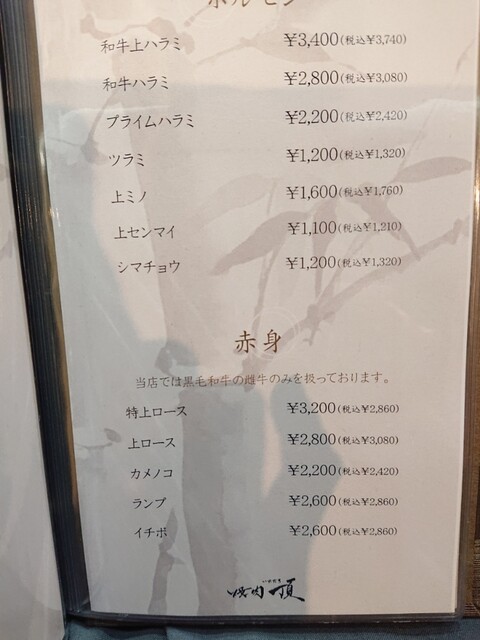 ホルモン
和牛上ハラミ ¥3,400(税込¥3,740)
和牛ハラミ ¥2,800(税込¥3,080)
プライムハラミ ¥2,200(税込¥2,420)
ツラミ ¥1,200(税込¥1,320)
上ミノ ¥1,600(税込¥1,760)
上センマイ ¥1,100(税込¥1,210)
シマチョウ ¥1,200(税込¥1,320)
赤身
当店では黒毛和牛の雌牛のみを扱っております。
特上ロース ¥3,200(税込¥2,860)
上ロース ¥2,800(税込¥3,080)
カメノコ ¥2,200(税込¥2,420)
ランプ ¥2,600(税込¥2,860)
イチボ ¥2,600(税込¥2,860)
いただき
焼肉 頂